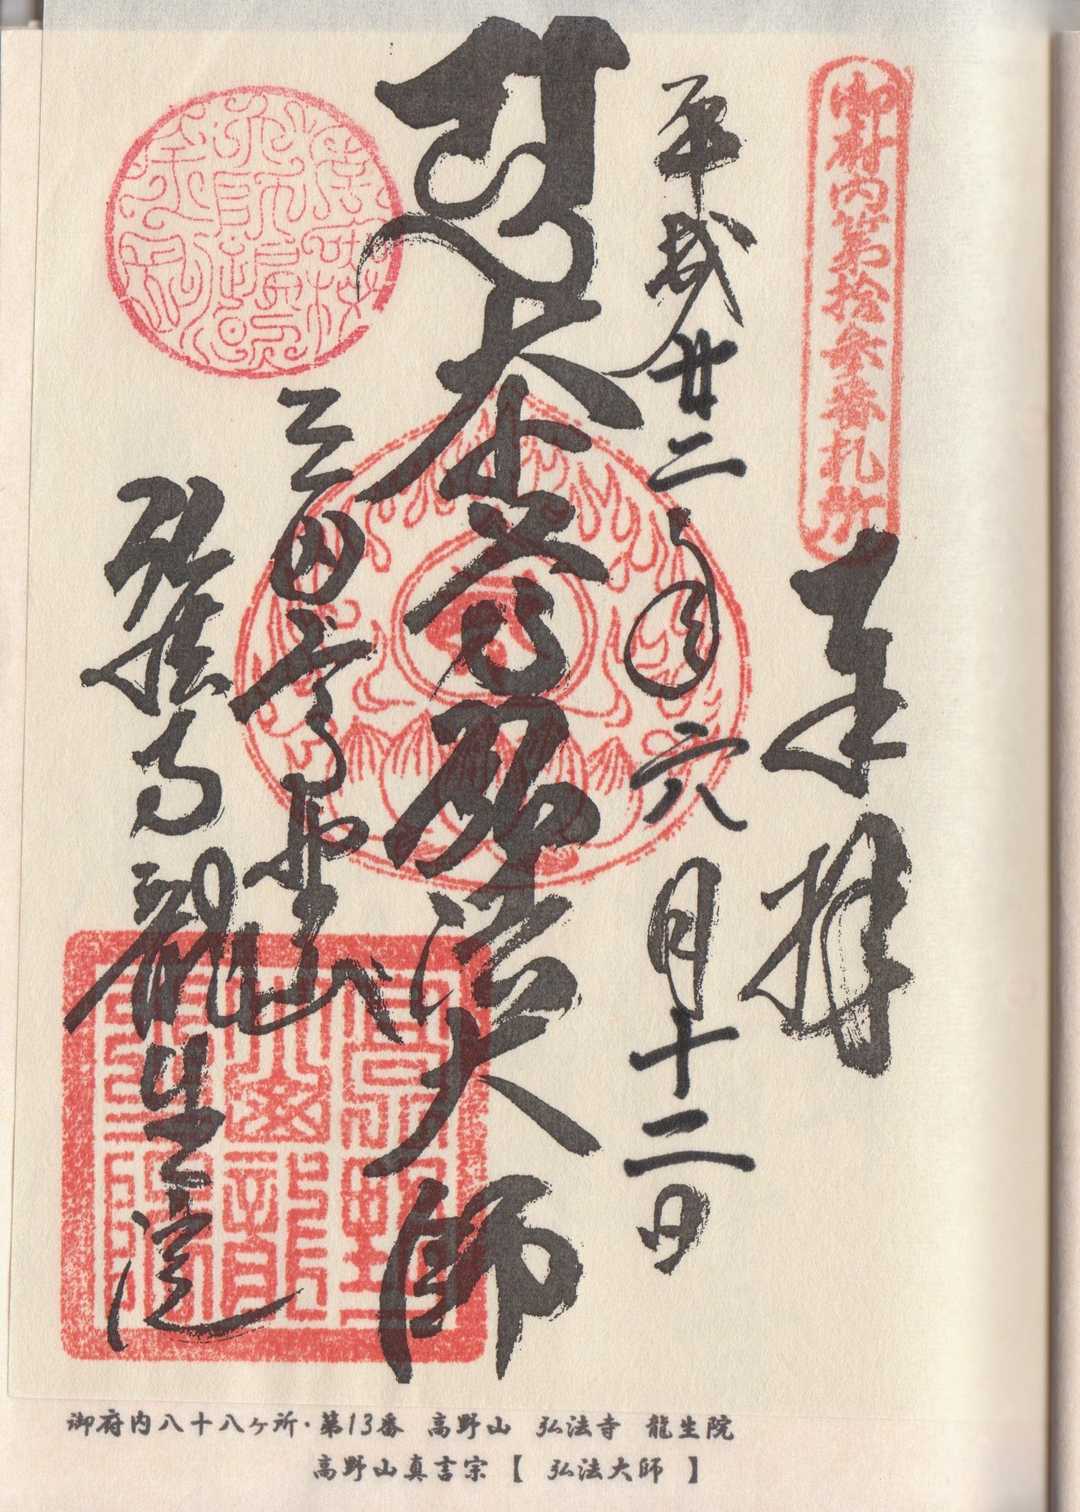 御府内第拾参番札所
奉拝
平成廿二年六月十二日
本尊弘法大師
三田高野山
弘法寺龍生院
御府内八十八ヶ所・第13番 高野山 弘法寺 龍生院
高野山真言宗【 弘法大師 】